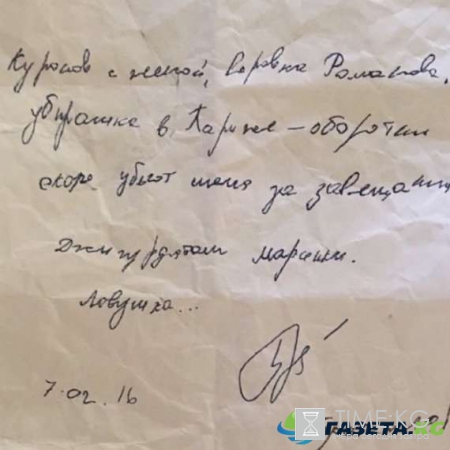 с женой, воровка Романова,
убирашка в Париже – оборотни
скоро убьют меня за завещание
Джигурдятам марашки.
Ловушка...
7.02.16
TIME.KG
ГАЗЕТА.KG